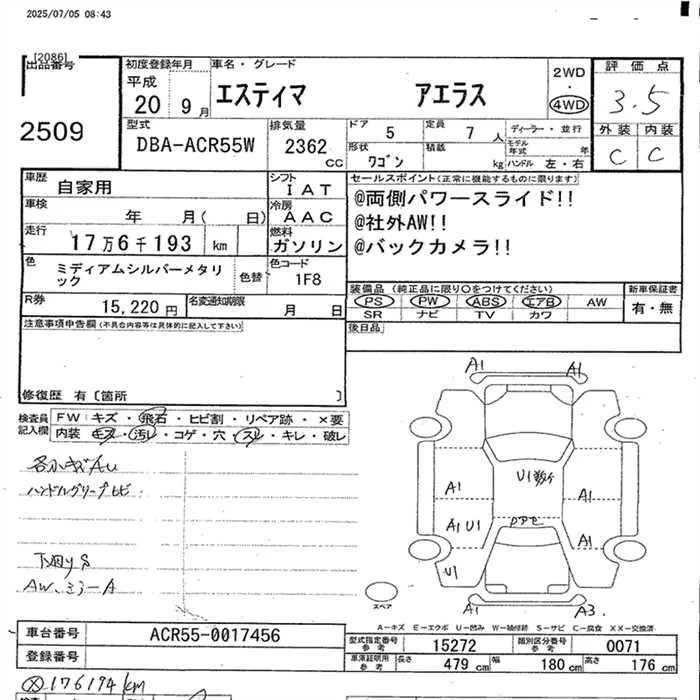 2025/07/05 08:43
[2086]
出品番号
2509
初度登録年月
平成
20 9月
車名・グレード
エスティマ アエラス
2WD
・
4WD
評価点
3.5
外装 内装
C C
型式
DBA-ACR55W
排気量
2362
CC
ドア 5
定員 7 人
形状 ワゴン
積載 kg
ディーラー・並行
モデル年式 年
ハンドル 左・右
車歴 自家用
車検 年 月( 日)
走行 17万6千193 km
色 ミディアムシルバーメタリック
色替
シフト IAT
冷房 AAC
燃料 ガソリン
色コード 1F8
R券 15,220 円
名変通知期限 月 日
セールスポイント(正常に機能するものに限ります)
@両側パワースライド!!
@社外AW!!
@バックカメラ!!
装備品(純正品に限り○をつけてください)
PS PW ABS エアB AW
SR ナビ TV カワ
新車保証書
有・無
後日品
注意事項申告欄(不具合内容等は具体的に記入して下さい)
修復歴 有〔箇所 〕
検査員記入欄
FW キズ・飛石・ヒビ割・リペア跡・×要
内装 キズ・汚レ・コゲ・穴・スレ・キレ・破レ
各小キズAU
ハンドルグリップヒビ
下回りS
AW、ミラーA
A1 A1
U1
A1 A1
A1 U1 A1
U1
A1 A3.
スペア
A－キズ E－エクボ U－凹み W－補修跡 S－サビ C－腐食 XX－交換済
車台番号 ACR55-0017456
登録番号
型式指定番号 参考 15272
類別区分番号 参考 0071
車庫証明用 参考 長さ 479 cm 幅 180 cm 高さ 176 cm
176194km